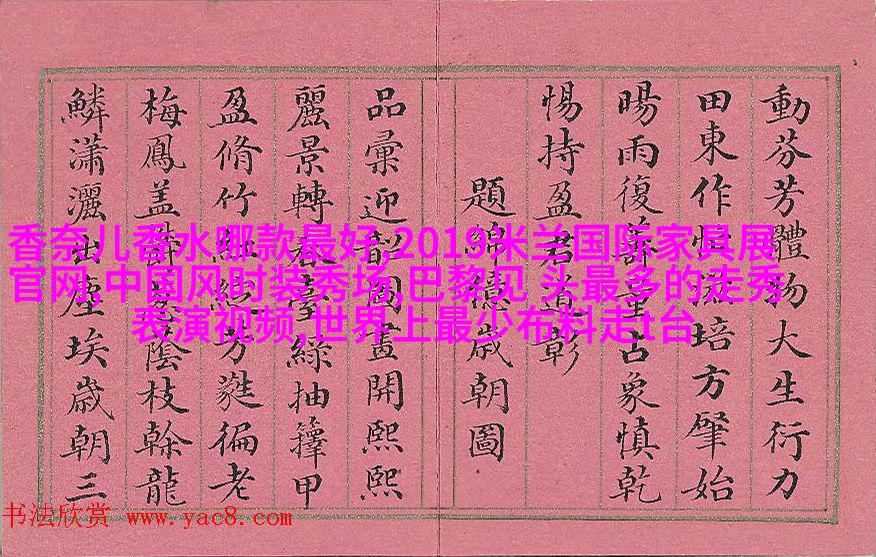 動芬芳體物大生衍力
田東作培方肇始
暘雨復占象慎乾
惕持盈君道彰
題歲朝圖
品彙迎韶圖畫開熙熙
麗景轉春臺綠抽籜甲
盈脩竹紅綻芳蕤徧老
梅鳳蓋陰枝榦龍
鱗瀟灑出塵埃歲朝三
香奈儿香水哪款最好,2019米兰国际家具展
官网,中国风时装秀场,巴黎见 头最多的走秀
表演视频,世界上最少布料走t台
书法欣赏 www.yac8.com